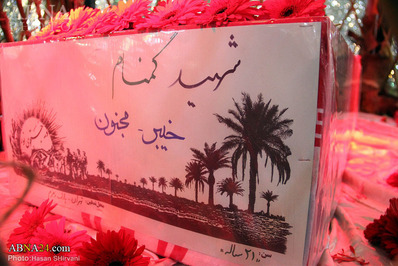 شهید گمنام
خیبر - مجنون
سن: ۲۱ ساله
ABNA24.com
Photo: Hasan Shirvani